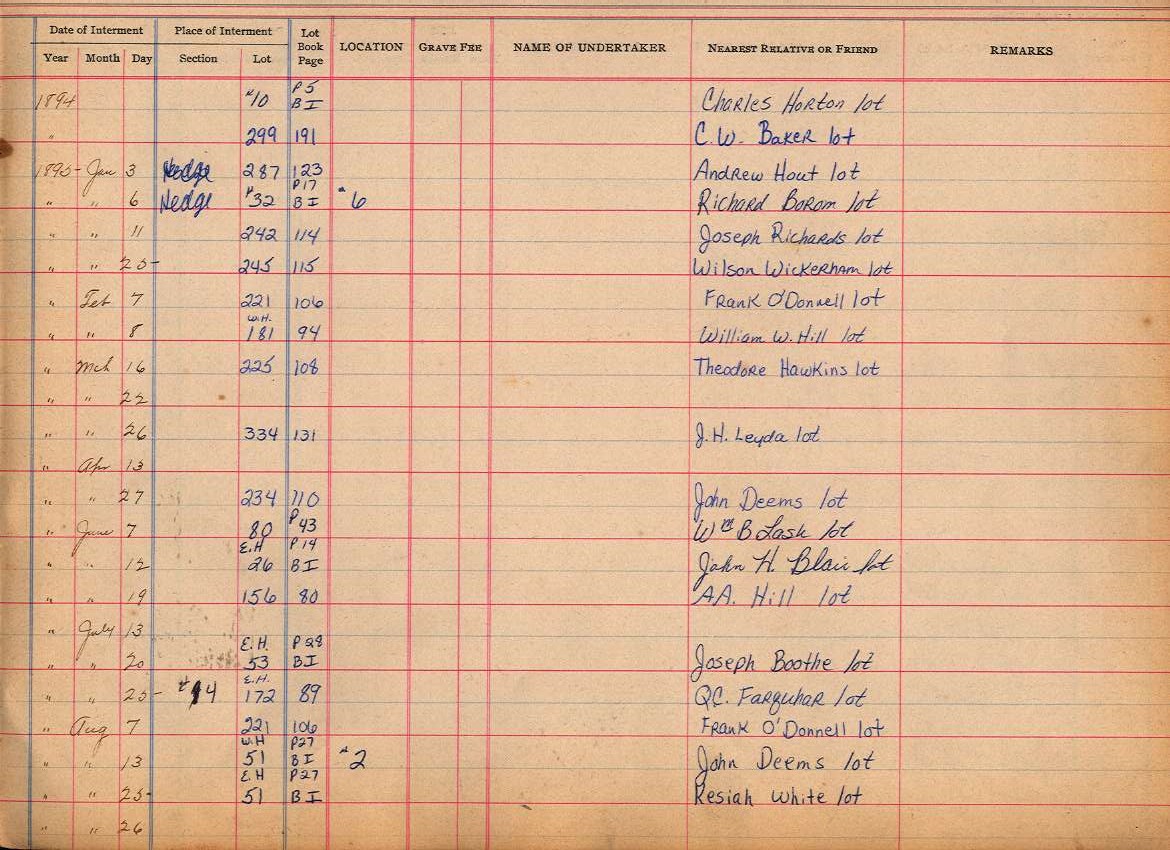 Date of Interment Place of Interment Lot Book Page LOCATION GRAVE FEE NAME OF UNDERTAKER NEAREST RELATIVE OR FRIEND REMARKS
Year Month Day Section Lot
1894 #10 P5 BI Charles Horton lot
" 299 191 C.W. Baker lot
1895 Jan 3 Hedge 287 123 Andrew Hout lot
" " 6 Hedge #32 P17 BI #6 Richard Borom lot
" " 11 242 114 Joseph Richards lot
" " 25 245 115 Wilson Wickerham lot
" Feb 7 221 106 Frank O'Donnell lot
" " 8 W.H. 181 94 William W. Hill lot
" Mch 16 225 108 Theodore Hawkins lot
" " 22
" " 26 334 131 J.H. Leyda lot
" Apr 13
" " 27 234 110 John Deems lot
" June 7 80 P43 Wm B Lash lot
" " 12 E.H 26 P14 BI John H. Blair lot
" " 19 156 80 A.A. Hill lot
" July 13
" " 20 E.H. 53 P28 BI Joseph Boothe lot
" " 25 #14 E.H. 172 89 Q.C. Farquhar lot
" Aug 7 221 106 Frank O'Donnell lot
" " 13 W.H 51 P27 BI #2 John Deems lot
" " 25 E.H 51 P27 BI Resiah White lot
" " 26